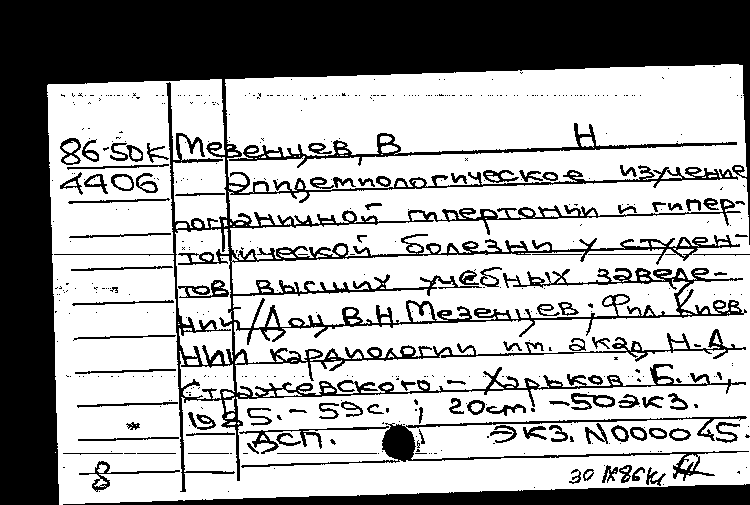 86-50К Мезенцев, В Н
4406 Эпидемиологическое изучение
пограничной гипертонии и гипер-
тонической болезни у студен-
тов высших учебных заведе-
ний/Доц. В.Н. Мезенцев; Фил. Киев.
НИИ кардиологии им. акад. Н.Д.
Стражевского.- Харьков: Б.и.,
1985.- 59с.; 20см. -50экз.
* ДСП. ЭКЗ. N000045.
8 30 IX86